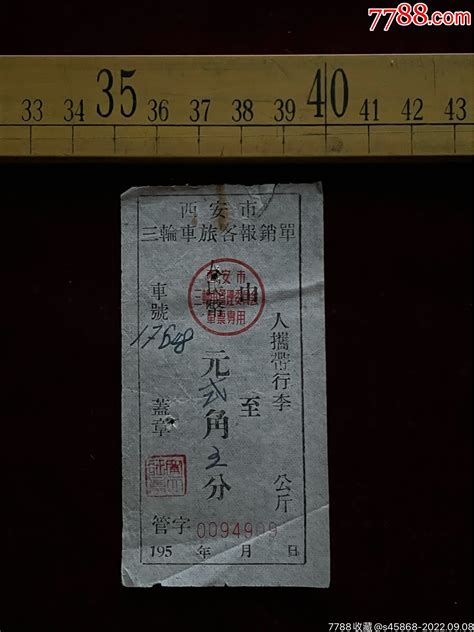 7788.com
33 34 35 36 37 38 39 40 41 42 43
西安市
三輪車旅客報銷單
人攜帶行李 公斤
由 至
人民幣 元弍角五分
車號 17648 蓋章
西安市
單票專用
管字 0094909
195 年 月 日
7788收藏@s45868-2022.09.08